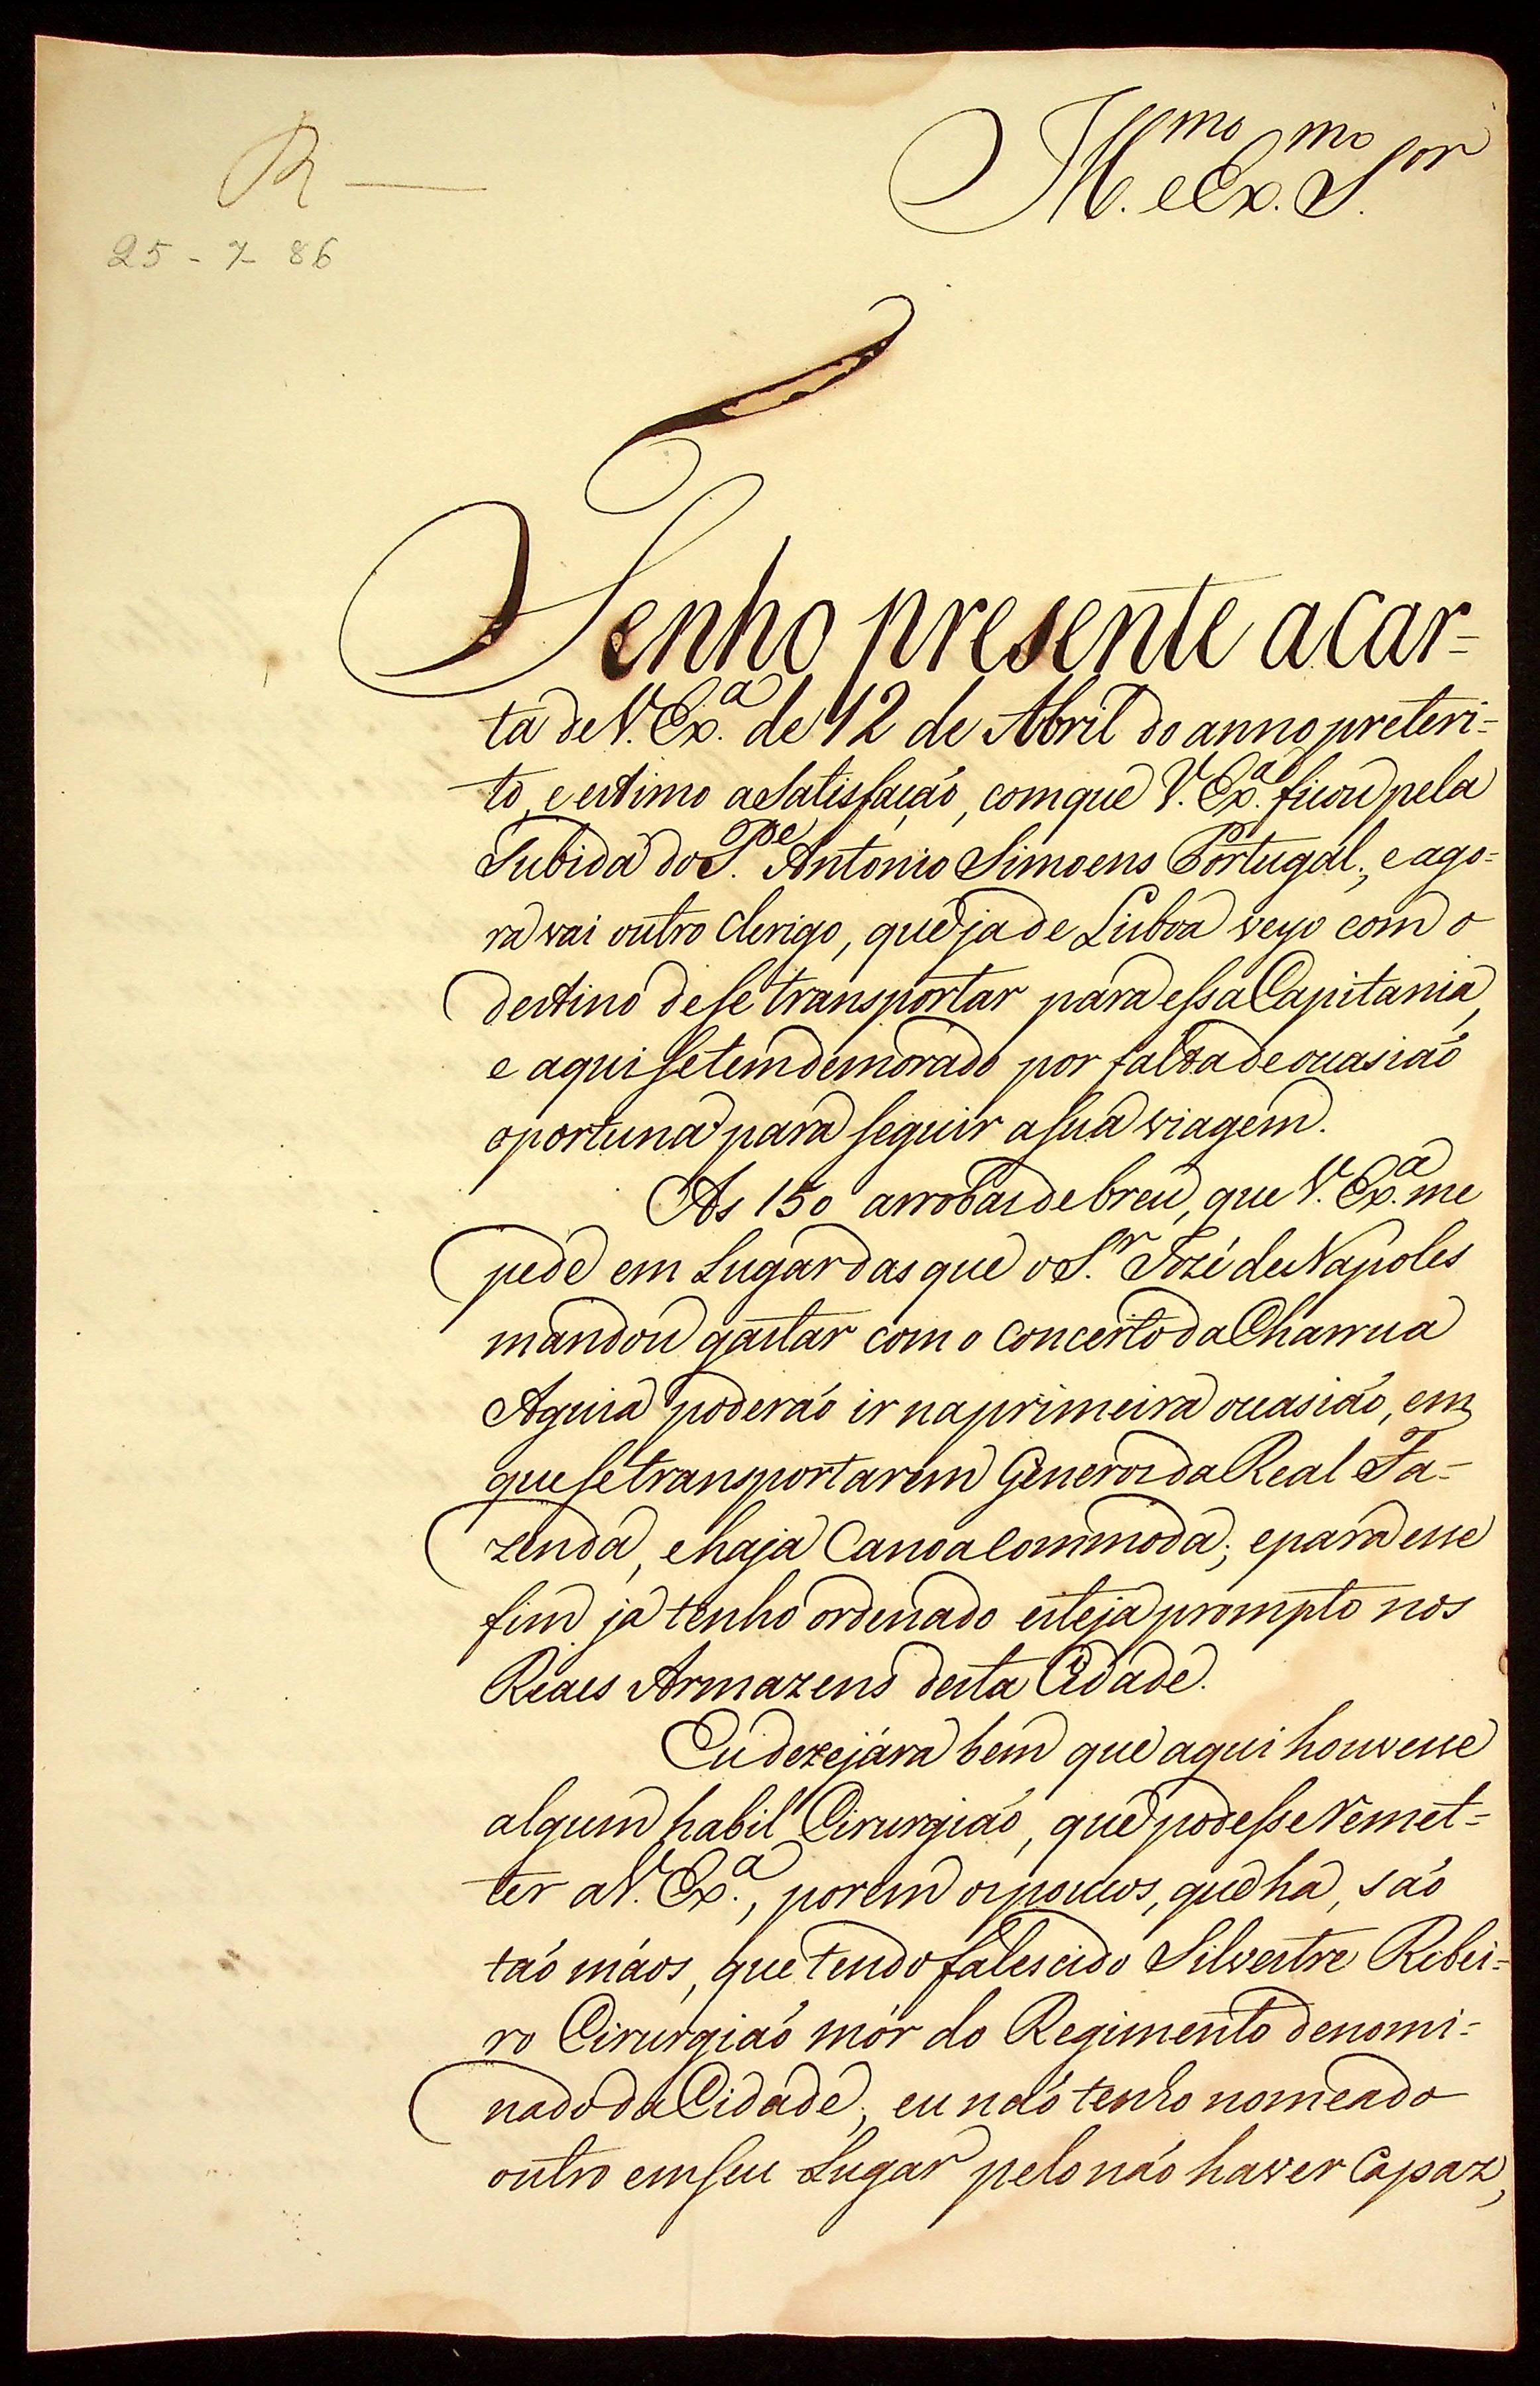 R
25-7-86
Ill.mo e Ex.mo S.or
Tenho presente a car-
ta de V. Ex.a de 12 de Abril do anno preteri-
to, e estimo a satisfaçaõ, com que V. Ex.a ficou pela
Subida do P.e Antonio Simoens Portugal; e ago-
ra vai outro clerigo, que ja de Lisboa veyo com o
destino de se transportar para essa Capitania,
e aqui se tem demorado por falta de ocasiaõ
oportuna para seguir a sua viagem.
As 150 arrobas de breu, que V. Ex.a me
pede em Lugar das que o S.r Jozé de Napoles
mandou gastar com o concerto da Charrua
Aguia poderáõ ir na primeira ocasiaõ, em
que se transportarem Generos da Real Fa-
zenda, e haja Canoa commoda; e para esse
fim já tenho ordenado esteja prompto nos
Reaes Armazens desta Cidade.
Eu dezejára bem que aqui houvesse
algum habil Cirurgiaõ, que podesse remet-
ter a V. Ex.a, porem os poucos, que ha, saõ
taõ máos, que tendo falescido Silvestre Ribei-
ro Cirurgiaõ mór do Regimento denomi-
nado da Cidade, eu naõ tenho nomeado
outro em seu Lugar pelo naõ haver Capaz,